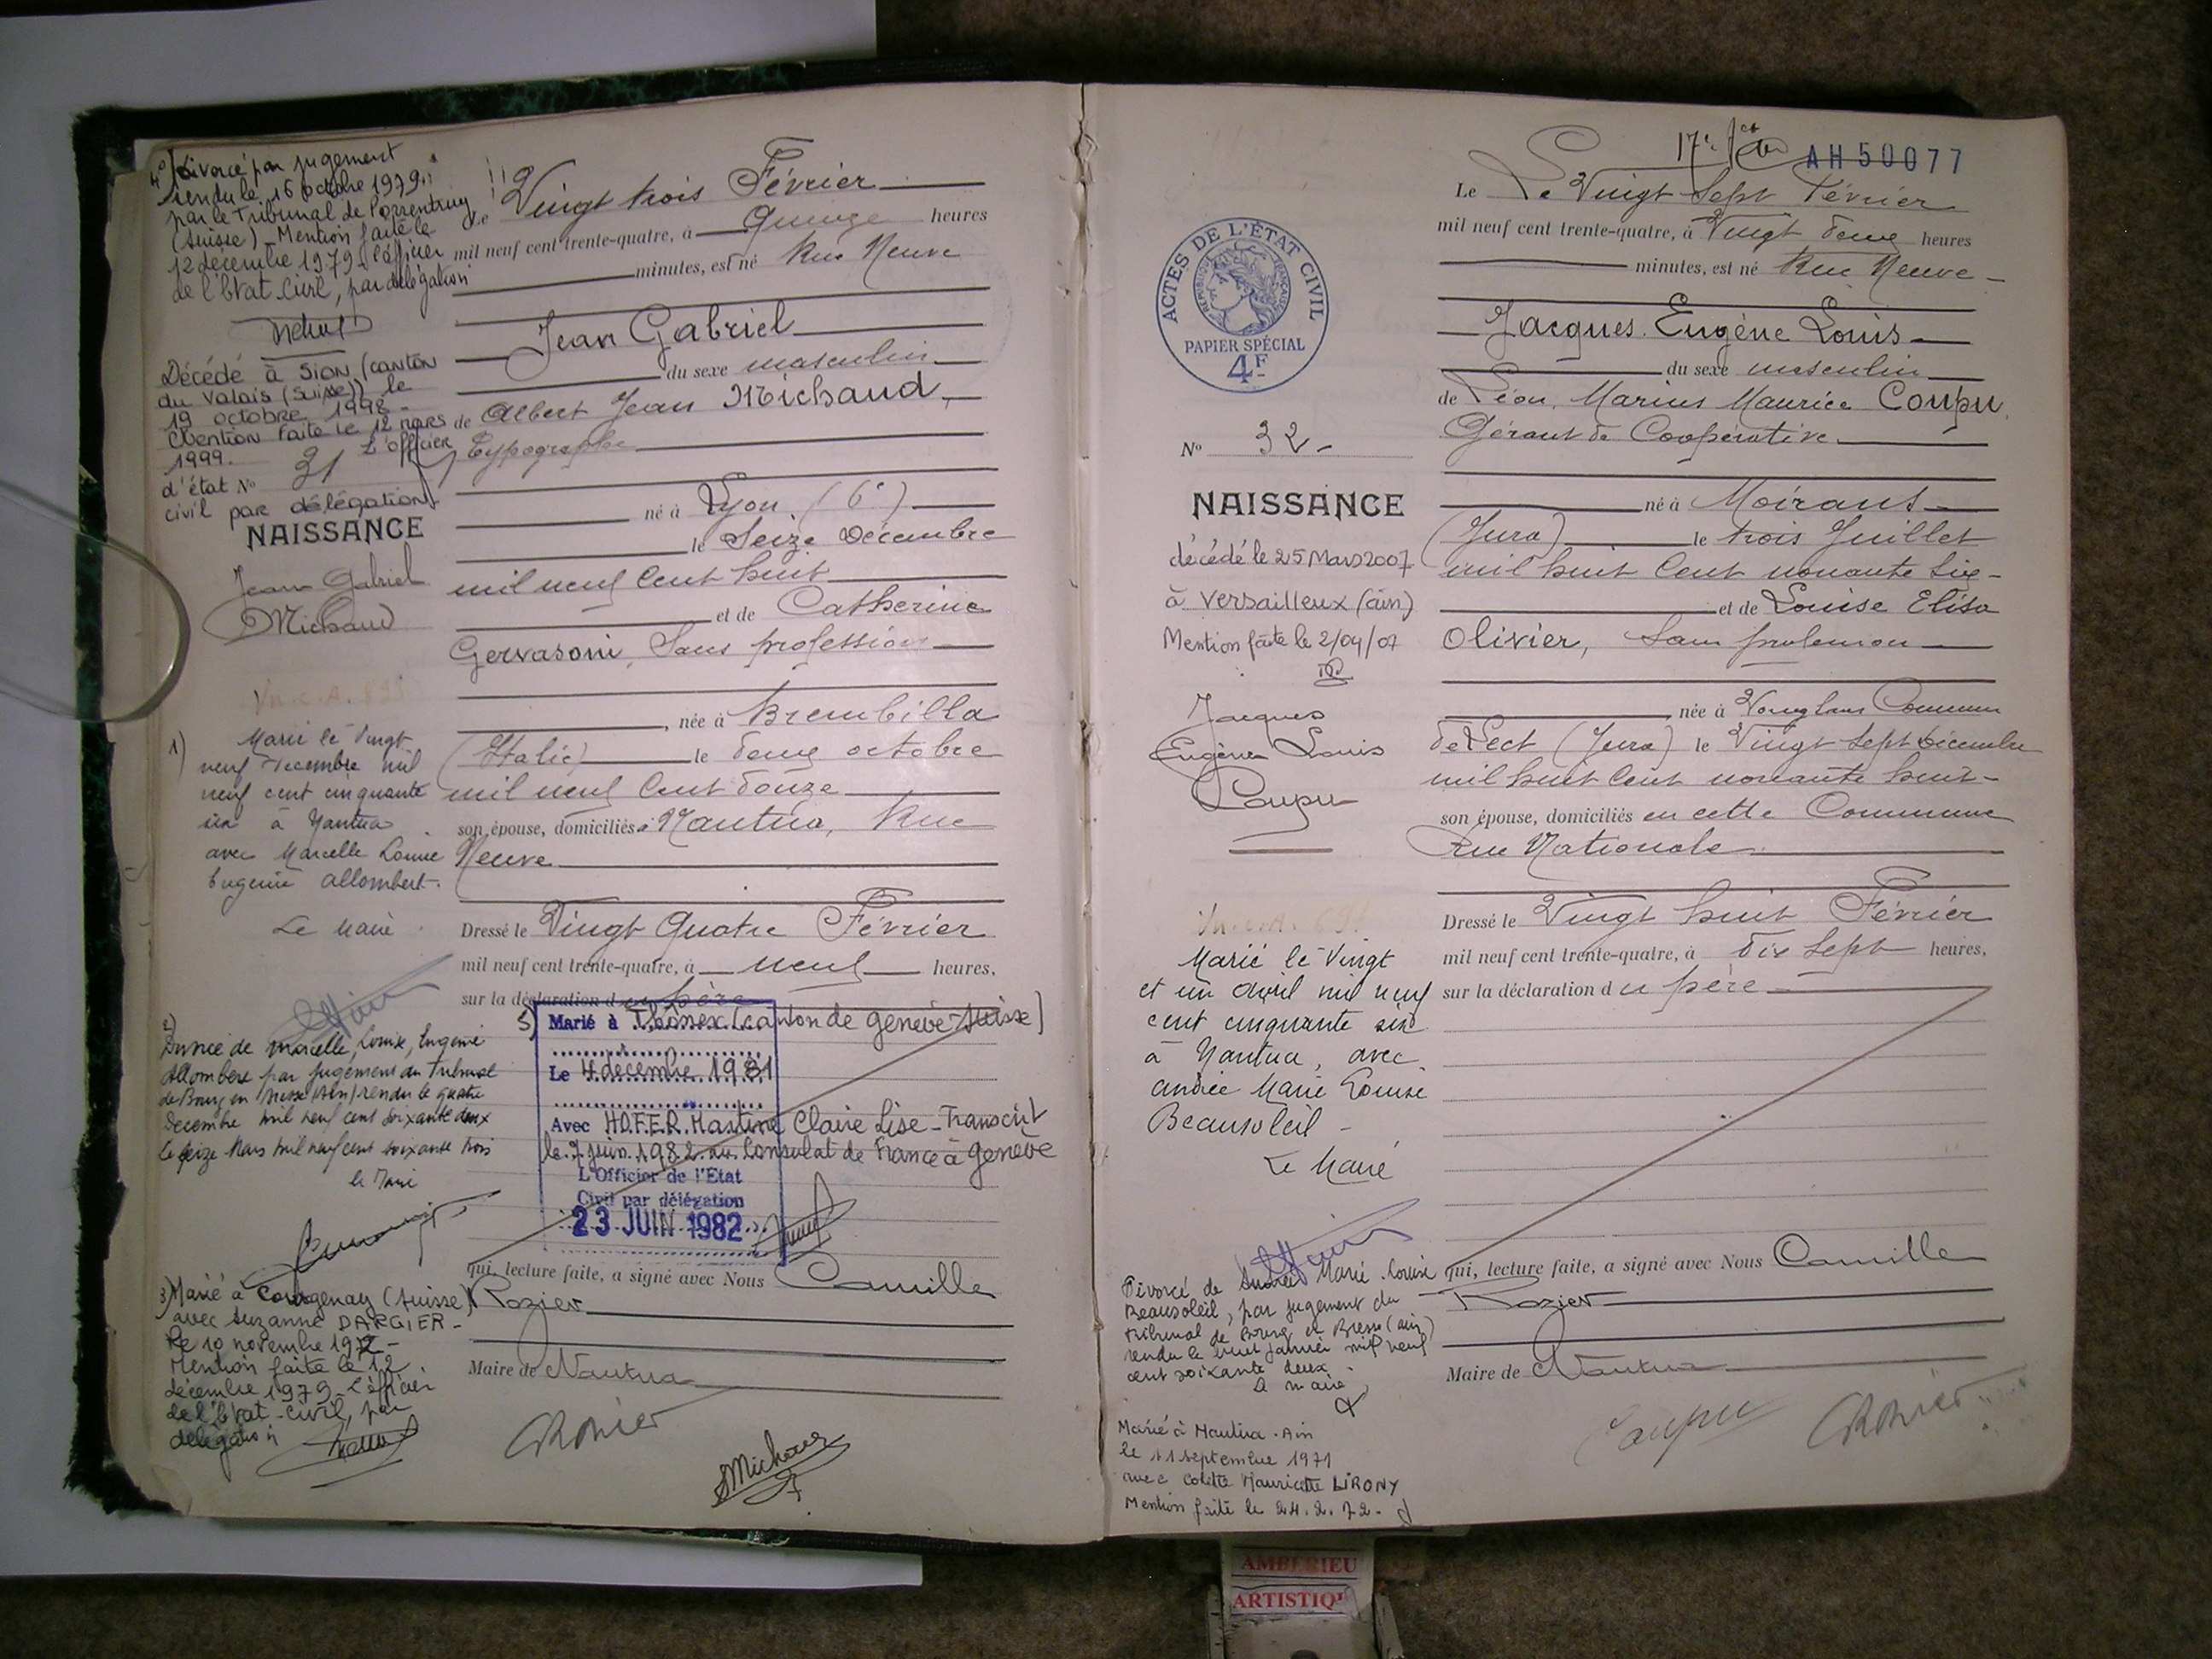 4°) Divorcé par jugement
rendu le 16 octobre 1979
par le Tribunal de Porrentruy
(Suisse) - Mention faite le
12 décembre 1979 - l'officier
de l'Etat-Civil, par délégation
Décédé à SION (canton
du Valais (Suisse)) le
19 octobre 1998 -
Mention faite le 12 mars
1999. L'officier
d'état
civil par délégation
N° 31
NAISSANCE
Jean Gabriel
Michaud
1) Marié le Vingt
neuf Décembre mil
neuf cent cinquante
six à Nantua
avec Marcelle Louise
Eugenie Allombert.
Le Maire
2) Divorcé de Marcelle, Louise, Eugenie
Allombert par jugement du Tribunal
de Bourg en Bresse (Ain) rendu le quatre
Décembre mil neuf cent soixante deux
Le seize Mars mil neuf cent soixante trois
le Maire
3) Marié à Courgenay (Suisse)
avec Suzanne DARGIER -
le 10 novembre 1972 -
Mention faite le 12
décembre 1979 - L'officier
de l'Etat-Civil, par
délégation
Le Vingt trois Février
mil neuf cent trente-quatre, à Quinze heures
minutes, est né Rue Neuve
Jean Gabriel
du sexe masculin
de Albert Jean Michaud,
Typographe
né à Lyon (6e)
le Seize Décembre
mil neuf Cent huit
et de Catherine
Gervasoni, Sans profession
, née à Brembilla
(Italie) le deux octobre
mil neuf Cent douze
son épouse, domiciliés à Nantua, Rue
Neuve
Dressé le Vingt Quatre Février
mil neuf cent trente-quatre, à neuf heures,
sur la déclaration du père
5) Marié à Thônex (canton de genève-Suisse)
Le 4 décembre 1981
Avec HOFER Martine Claire Lise - Transcrit
le 7 juin 1982 au Consulat de France à genève
L'Officier de l'Etat
Civil par délégation
23 JUIN 1982
qui, lecture faite, a signé avec Nous Camille
Rozier
Maire de Nantua
CRozier
AMichaud
17e
AH 50077
ACTES DE L'ÉTAT CIVIL
RÉPUBLIQUE FRANÇAISE
PAPIER SPÉCIAL
4F
N° 32 -
NAISSANCE
décédé le 25 Mars 2007
à Versailleux (ain)
Mention faite le 2/04/07
Jacques
Eugène Louis
Coupu
Marié le Vingt
et un avril mil neuf
cent cinquante six
à Nantua, avec
andrée Marie Louise
Beausoleil -
Le Maire
Divorcé de Andrée Marie Louise
Beausoleil, par jugement du
tribunal de Bourg en Bresse (ain)
rendu le huit janvier mil neuf
cent soixante deux -
Le maire
Marié à Nantua - Ain
le 11 septembre 1971
avec Colette Mauricette LIRONY
Mention faite le 24.2.72 -
Le Le Vingt Sept Février
mil neuf cent trente-quatre, à Vingt deux heures
minutes, est né Rue Neuve -
Jacques Eugène Louis
du sexe masculin
de Léon, Marius Maurice Coupu,
Gérant de Coopérative
né à Moirans
(Jura) le trois Juillet
mil huit Cent nonante Six -
et de Louise Elisa
Olivier, Sans profession
née à Vouglans Commune
de Lect (Jura) le Vingt Sept Décembre
mil huit Cent nonante huit -
son épouse, domiciliés en cette Commune
Rue Nationale
Dressé le Vingt huit Février
mil neuf cent trente-quatre, à dix Sept heures,
sur la déclaration du père
qui, lecture faite, a signé avec Nous Camille
Rozier
Maire de Nantua
Coupu CRozier
AMBERIEU
ARTISTIQ